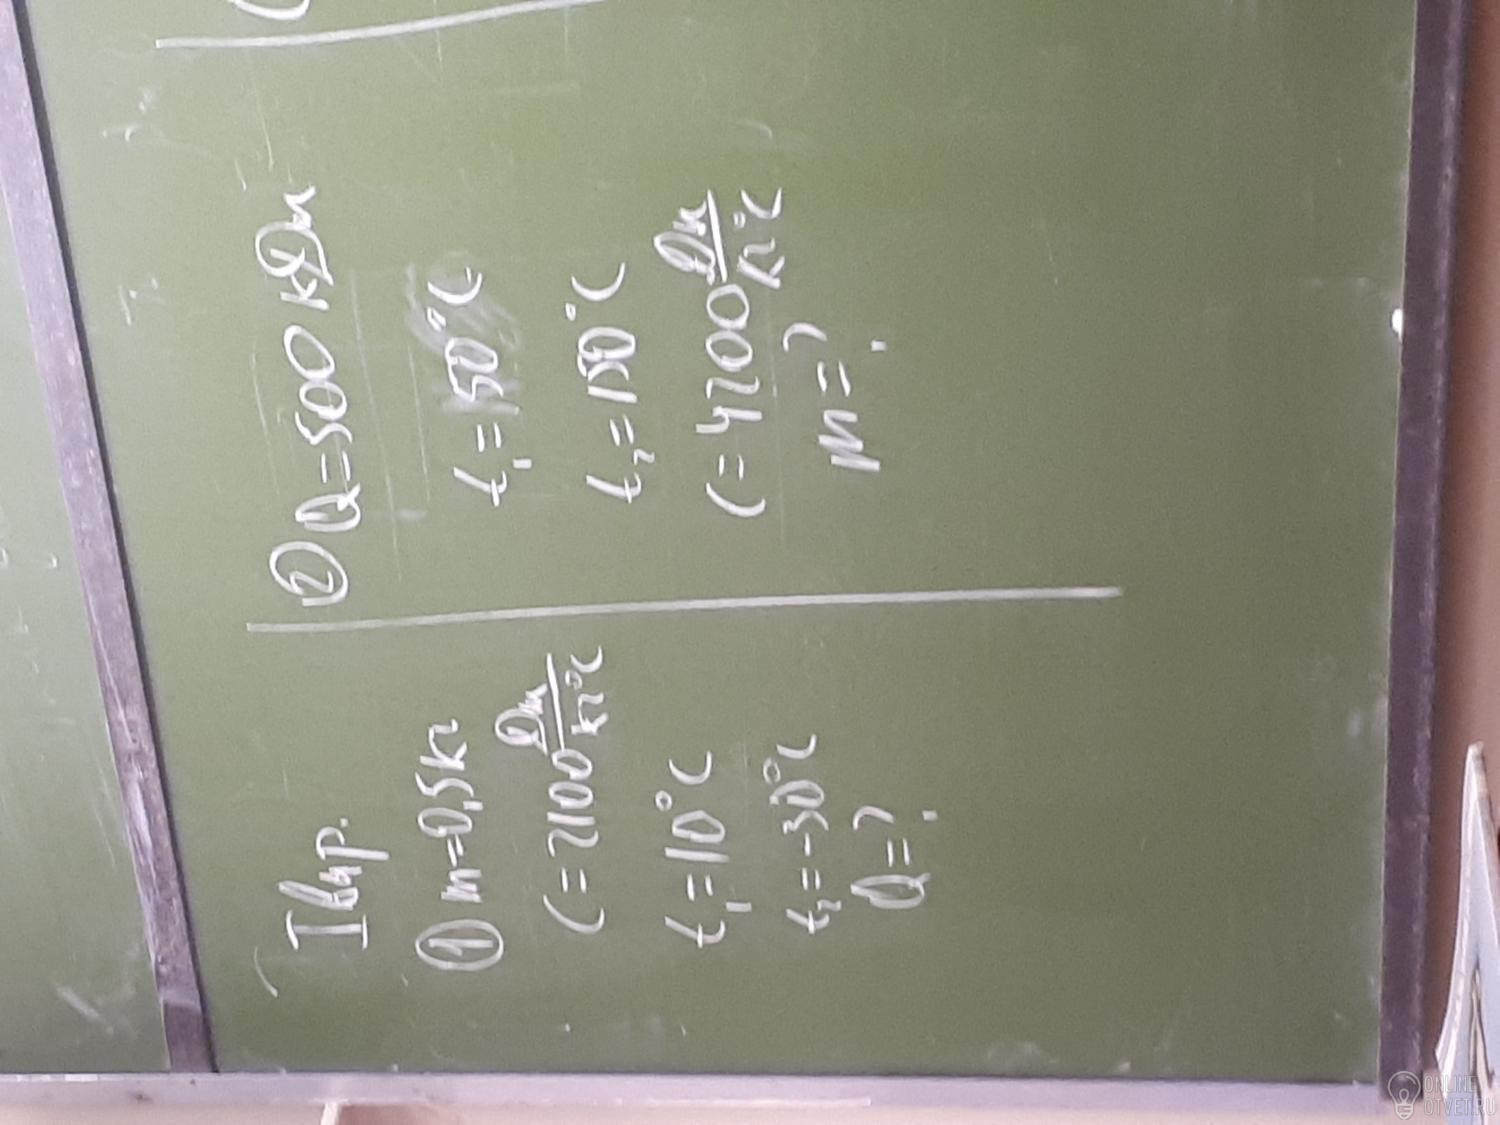 I вар.
① m=0,5кг
C=2100 Дж/кг°C
t₁=10°C
t₂=-30°C
Q=?
② Q=500 кДж
t₁=50°C
t₂=150°C
C=4200 Дж/кг°C
m=?
ONLINE
OTVET.RU